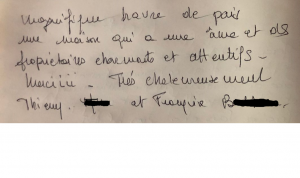 magnifique havre de paix
une maison qui a une âme et des
propriétaires charmants et attentifs -
Merciiii - Très chaleureusement
Thierry. et Françoise B